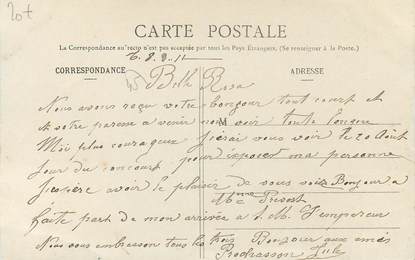 20t
CARTE POSTALE
La Correspondance au recto n'est pas acceptée par tous les Pays Étrangers. (Se renseigner à la Poste.)
CORRESPONDANCE
ADRESSE
8 8 11
Belle Rosa
Nous avons reçu votre bonjour tout court et
votre paresse a venir nous voir toute longue
Moi plus courageux j'irai vous voir le 20 Août
jour du concours pour exposer ma personne
J'espère avoir le plaisir de vous voir Bonjour a
Mme Prevost
faite part de mon arrivée a S. M. l'empereur
Nous vous embrassons tous les trois Bonjour aux amis
Jules